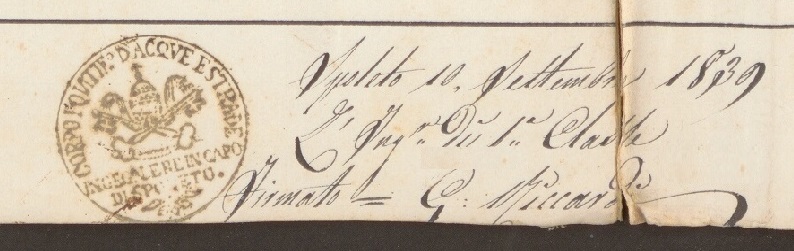 CORPO PONTIF. D'ACQVE E STRADE
INGEGNERE IN CAPO
DI SPOLETO.
Spoleto 10. Settembre 1839
L'Ing.re Di 1.a Classe
Firmato = G. Riccardi